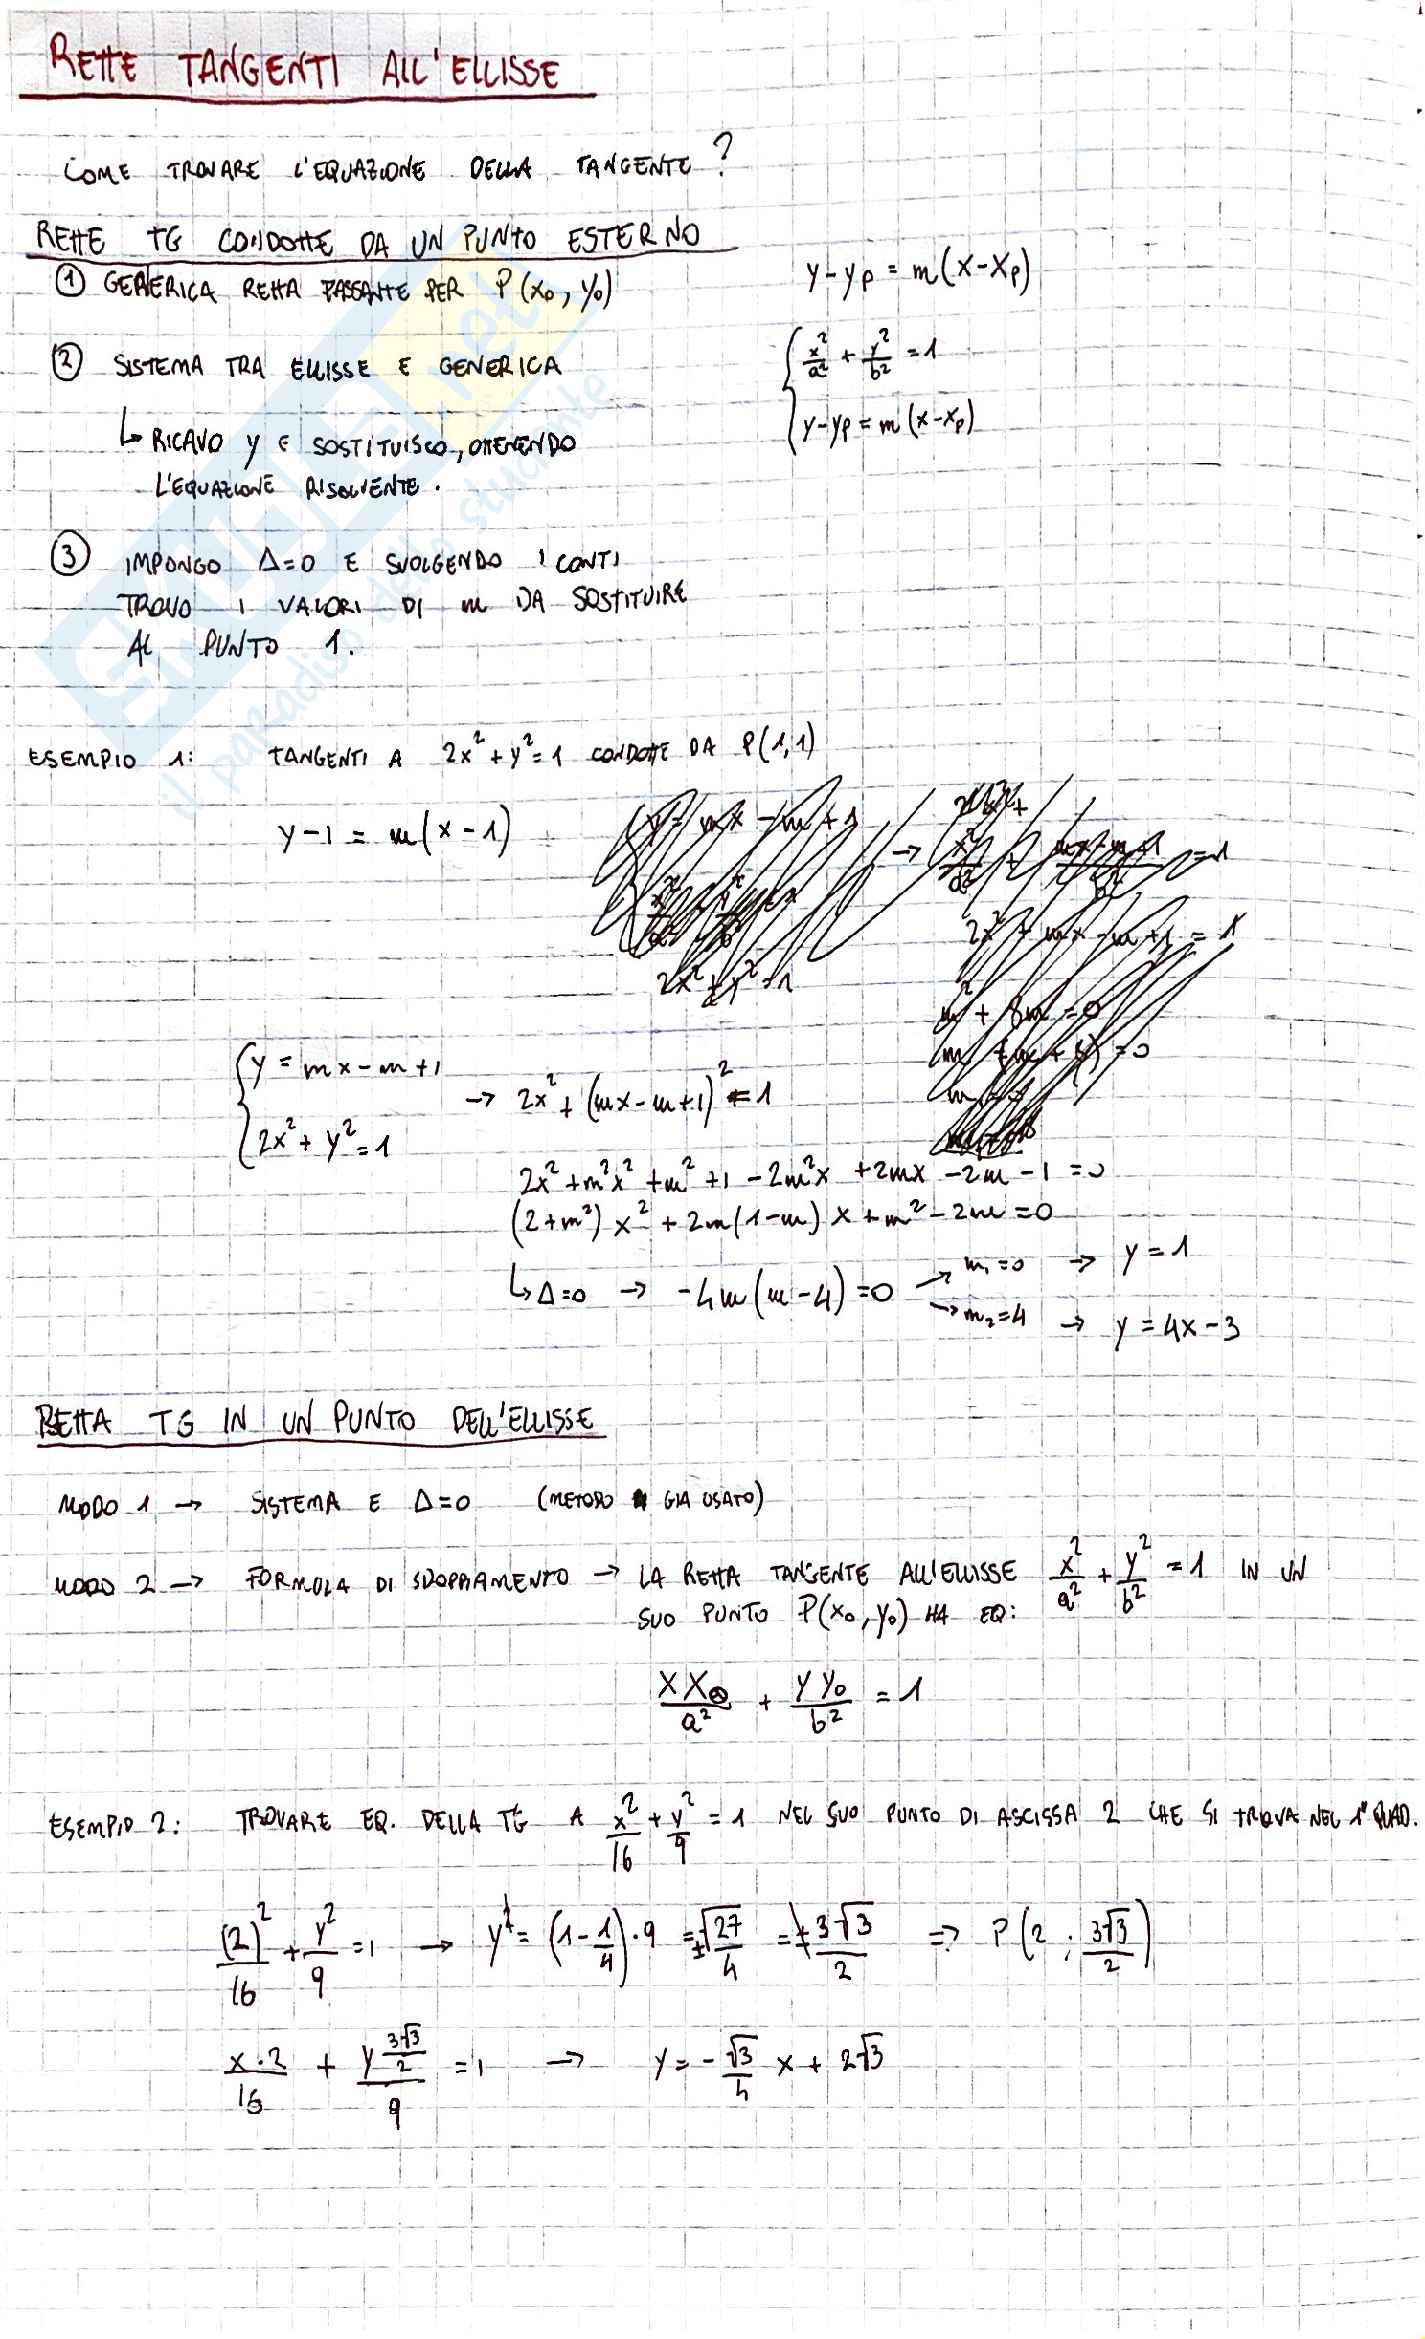 RETTE TANGENTI ALL'ELLISSE
COME TROVARE L'EQUAZIONE DELLA TANGENTE?
RETTE TG CONDOTTE DA UN PUNTO ESTERNO
① GENERICA RETTA PASSANTE PER P(x₀, y₀)
y-yp = m(x-xp)
② SISTEMA TRA ELLISSE E GENERICA
{ x²/a² + y²/b² = 1
y-yp = m(x-xp)
↳ RICAVO y E SOSTITUISCO, OTTENENDO
L'EQUAZIONE RISOLVENTE.
③ IMPONGO Δ=0 E SVOLGENDO I CONTI
TROVO I VALORI DI m DA SOSTITUIRE
AL PUNTO 1.
SKUOLA.net
il paradiso dello studente
ESEMPIO 1: TANGENTI A 2x²+y²=1 CONDOTTE DA P(1,1)
y-1 = m(x-1)
{ y = mx-m+1
2x²+y²=1
→ 2x²+(mx-m+1)²=1
2x²+m²x²+m²+1-2m²x+2mx-2m-1=0
(2+m²)x²+2m(1-m)x+m²-2m=0
↳ Δ=0 → -4m(m-4)=0 → m₁=0 → y=1
→ m₂=4 → y=4x-3
RETTA TG IN UN PUNTO DELL'ELLISSE
MODO 1 → SISTEMA E Δ=0 (METODO GIA USATO)
MODO 2 → FORMULA DI SDOPPIAMENTO → LA RETTA TANGENTE ALL'ELLISSE x²/a² + y²/b² = 1 IN UN
SUO PUNTO P(x₀, y₀) HA EQ:
xx₀/a² + yy₀/b² = 1
ESEMPIO 2: TROVARE EQ. DELLA TG A x²/16 + y²/9 = 1 NEL SUO PUNTO DI ASCISSA 2 CHE SI TROVA NEL 1° QUAD.
(2)²/16 + y²/9 = 1 → y² = (1-1/4)·9 = ±√27/4 = ±3√3/2 ⇒ P(2; 3√3/2)
x·2/16 + y 3√3/2 /9 = 1 → y = -√3/4 x + 2√3